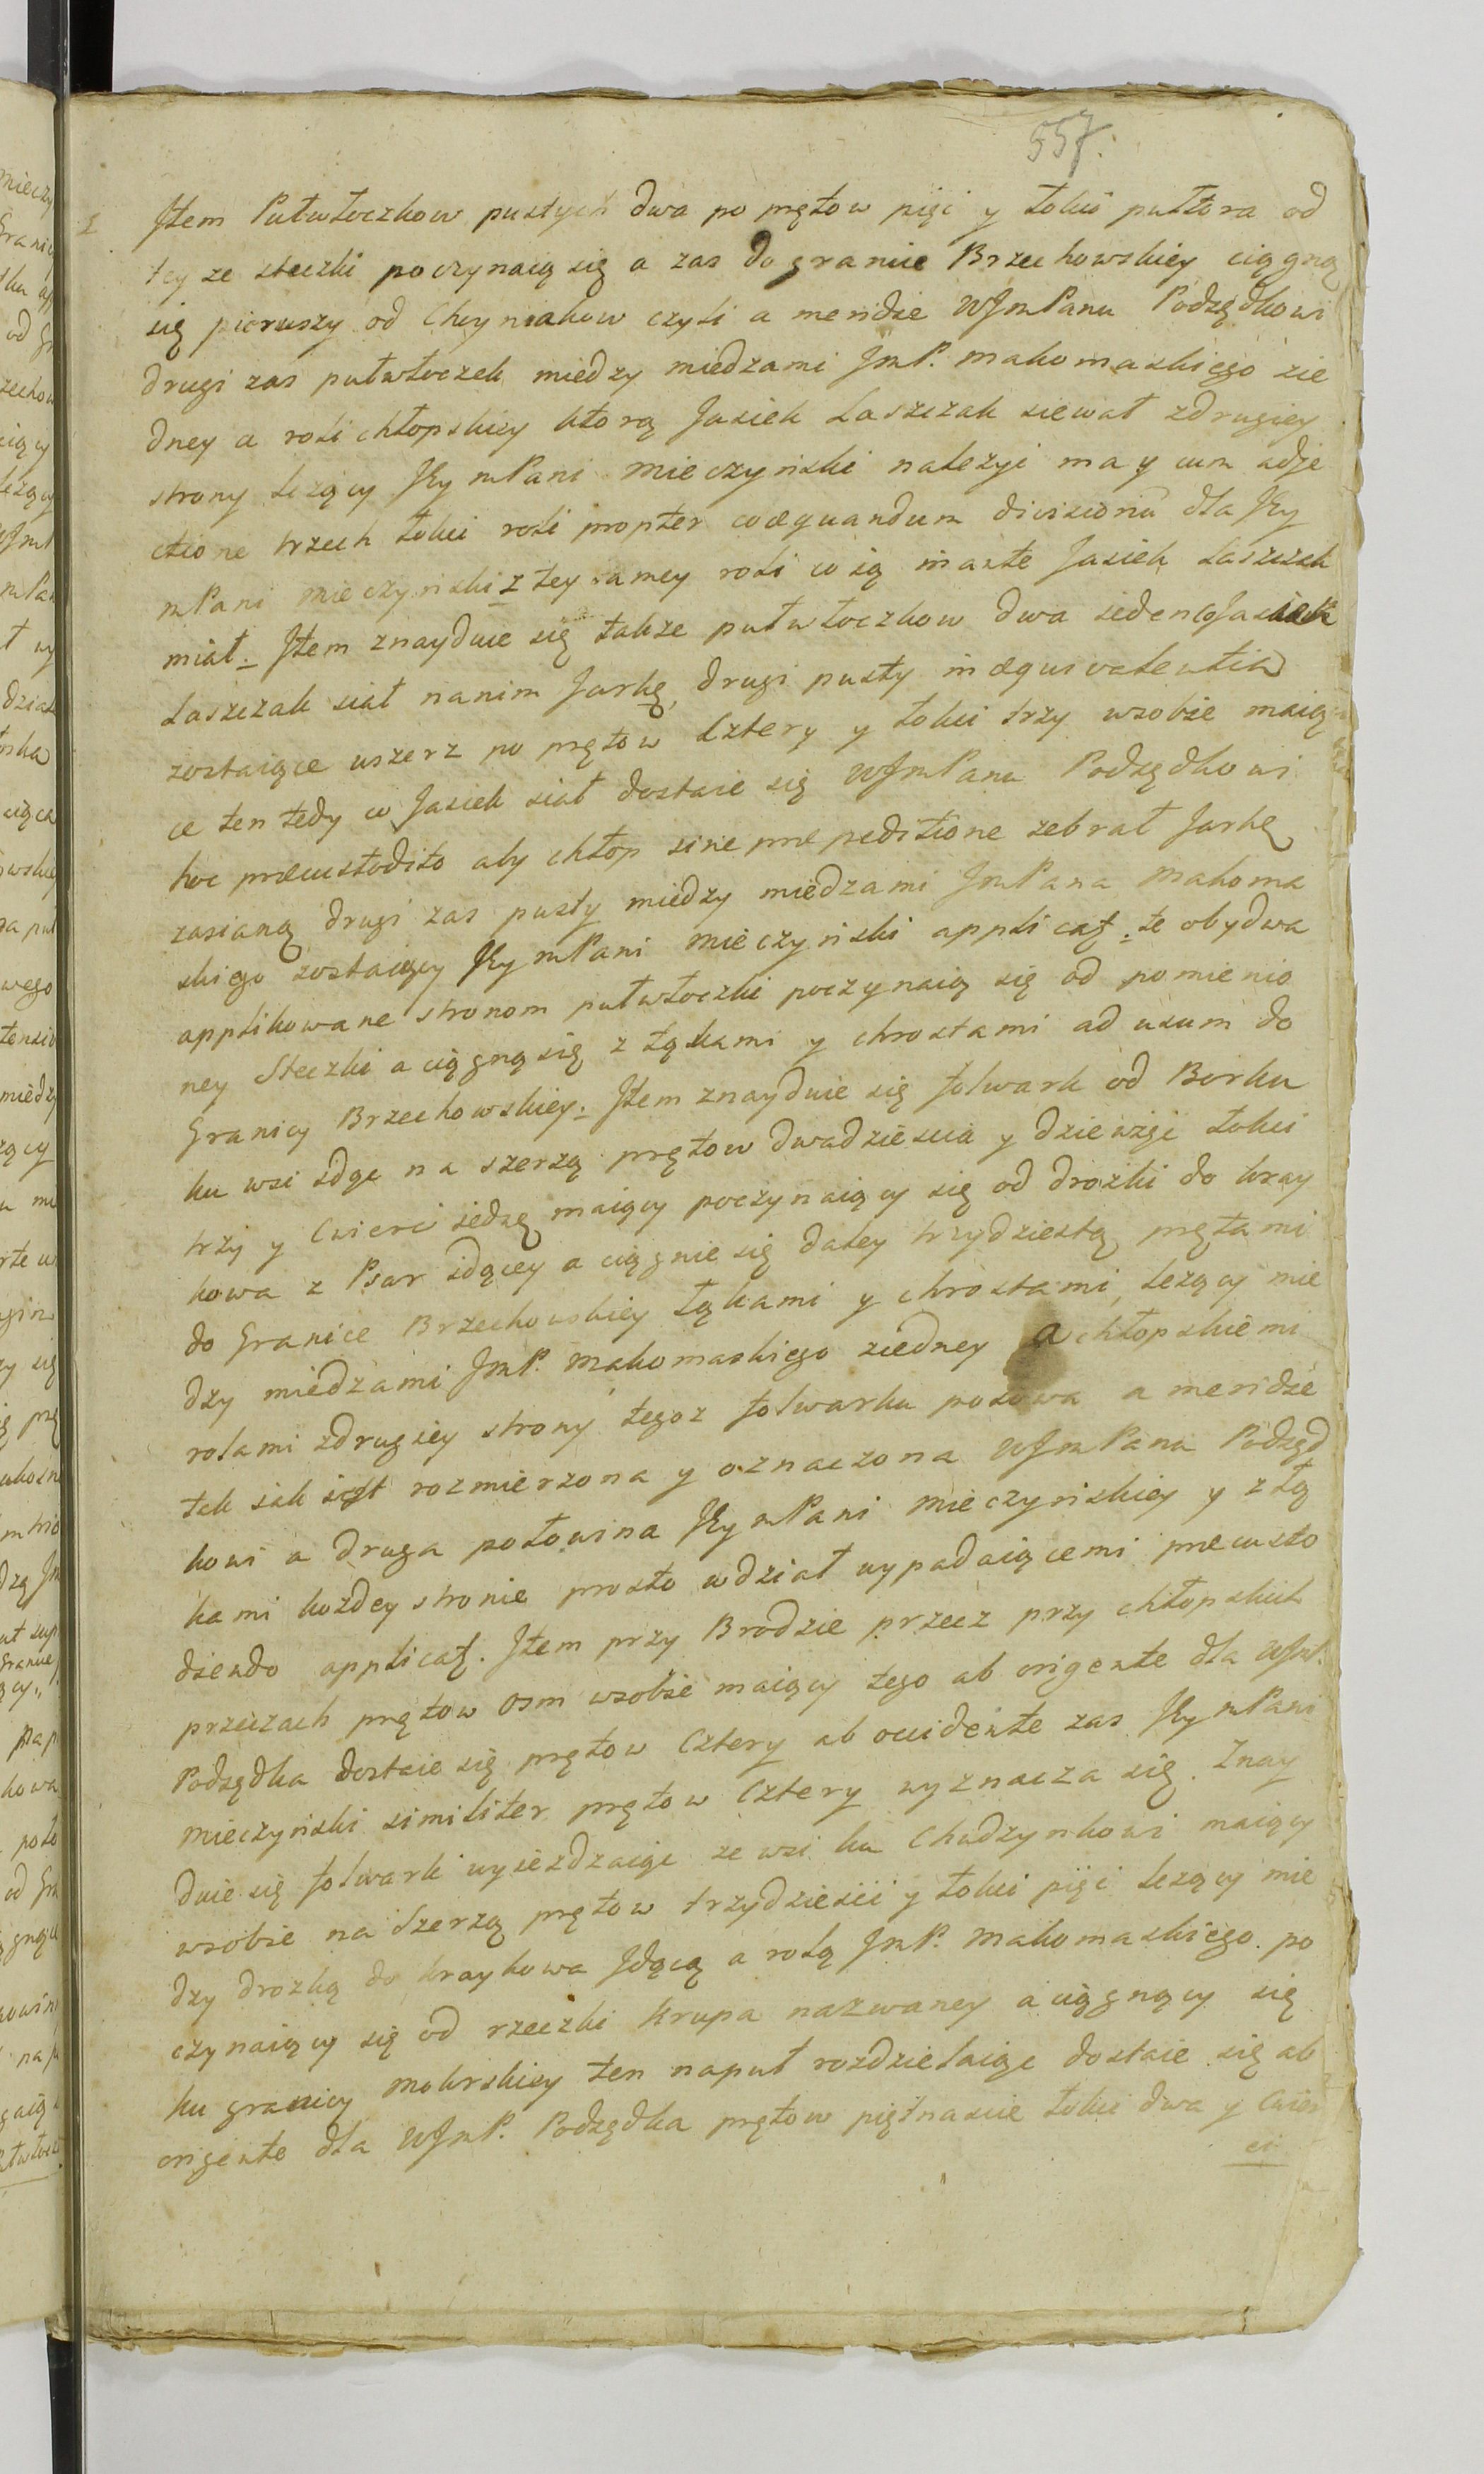 557.
Jtem Pułwłoczkow pustych dwa po prętow pięć y łokci pułtora od
tey ze steczki poczynaią się a zas do granice Brzechowskiey ciągną
się pierwszy od Chyniakow czyli a meridie WJmPanu Podsędkowi
drugi zas pułwłoczek między miedzami JmP. Makomaskiego zie
dney a roli chłopskiey ktorą Jasiek Laszczak siewał zdrugiey
strony lezący JEymPani Mieczynski nalezyć ma y cum adje
ctione trzech łokci roli propter coæquandum divisionū dla JEy
mPani Mieczynski z tey samey roli co ią in arte Jasiek Laszczak
miał. Jtem znayduie się takze pułwłoczkow dwa ieden co Jasiek
Laszczak siał nanim Jarkę, drugi pusty in æquivalentia
zostaiące uszerz po prętow cztery y łokci trzy wsobie maią
ce ten tedy co Jasiek siał dostaie się WJmPanu Podsędkowi
hoc præcustodito aby chłop sine præpeditione zebrał Jarkę
zasianą drugi zas pusty między miedzami JmPana Makoma
skiego zostaiący JEymPani Mieczynski applicat. te obydwa
applikowane stronom pułwłoczki poczynaią się od pomienio
ney Steczki a ciągną się z łąkami y chrostami ad usum do
Granicy Brzechowskiey. Jtem znayduie się folwark od Borku
ku wsi idąc na szerzą prętow dwadziescia y dziewięć łokci
trzy y Cwierć iedzę maiący poczynaiący się od drozki do kray
kowa z Psar idącey a ciągnie się daley trzydziestą prętami
do Granice Brzechowskiey łąkami y chrostami, lezący mie
dzy miedzami JmP. Makomaskiego ziedney a chłopskiemi
rolami zdrugiey strony tegoz folwarku połowa a meridie
tak iak iest rozmierzona y oznaczona WJmPanu Podsęd
kowi a druga połowina JEymPani Mieczynskiey y z łą
kami kozdey stronie prosto wdział wypadaiącemi præcusto
diendo applicat. Jtem przy Brodzie przecz przy chłopskich
przeczach prętow osm wsobie maiący tego ab origente dla WJmP.
Podsędka dostaie się prętow Cztery ab occidente zas JEymPani
Mieczynski similiter prętow Cztery wyznacza się. Znay
duie się folwark wyiezdzaiąc ze wsi ku Chudzynkowi maiący
wsobie na Szerzą prętow trzydziesci y łokci pięć lezący mie
dzy drozką do kraykowa Jdącą a rolą JmP. Makomaskiego. po
czynaiący się od rzeczki Krupa nazwaney a ciągnący się
ku granicy Mokrskiey ten napuł rozdzielaiąc dostaie się ab
origente dla WJmP. Podsędka prętow piętnascie łokci dwa y Cwier
ci